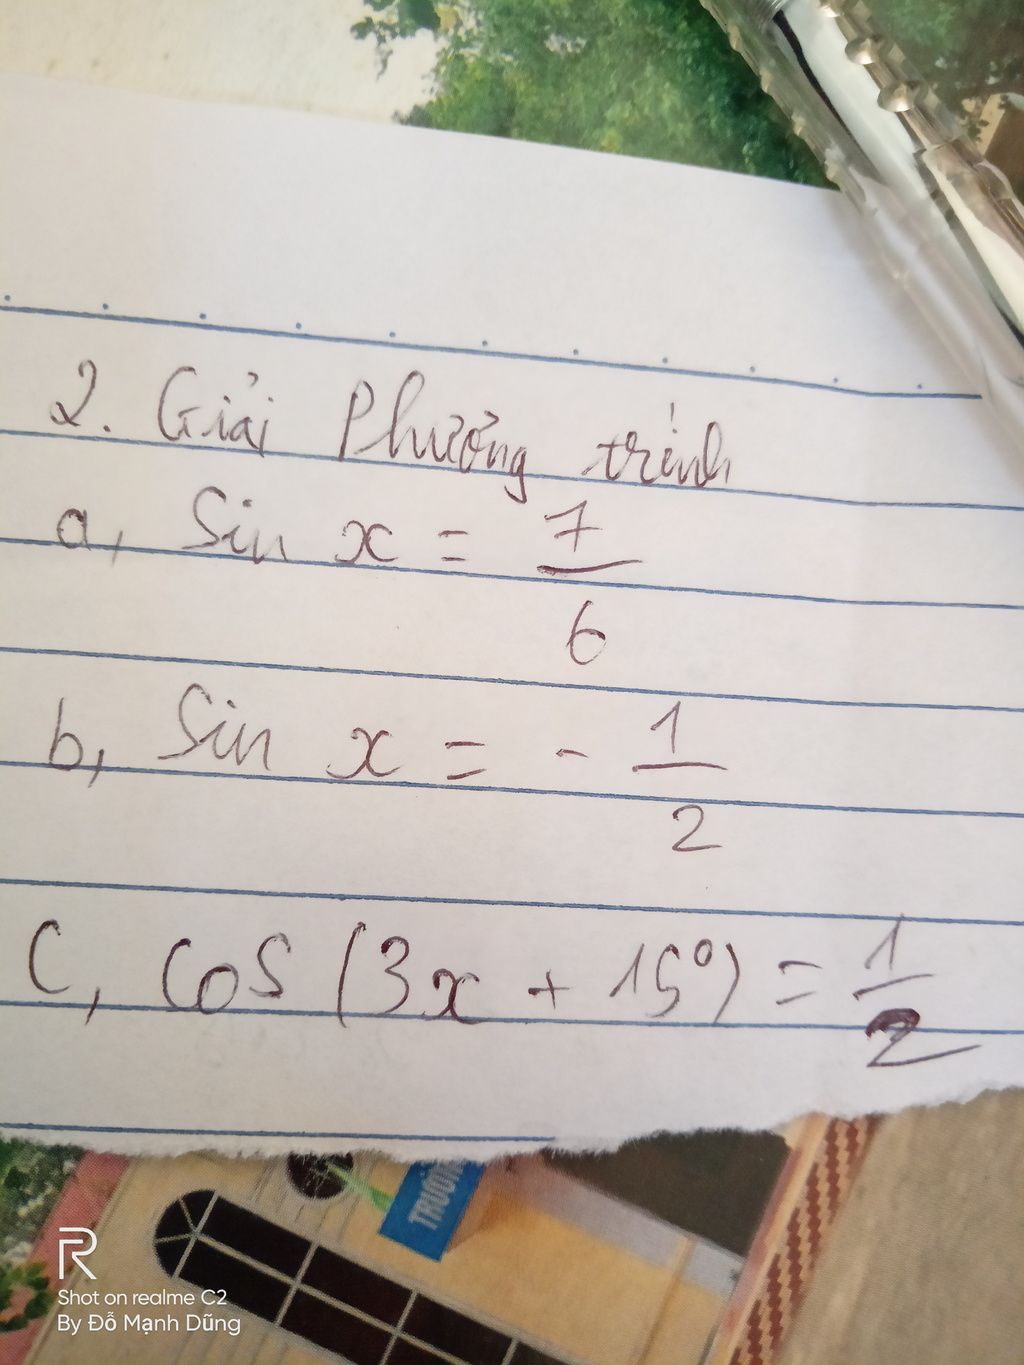 2. Giải Phương trình
a, Sin x = 7/6
b, Sin x = - 1/2
C, cos (3x + 15°) = 1/2
TRƯỜN
R
Shot on realme C2
By Đỗ Mạnh Dũng